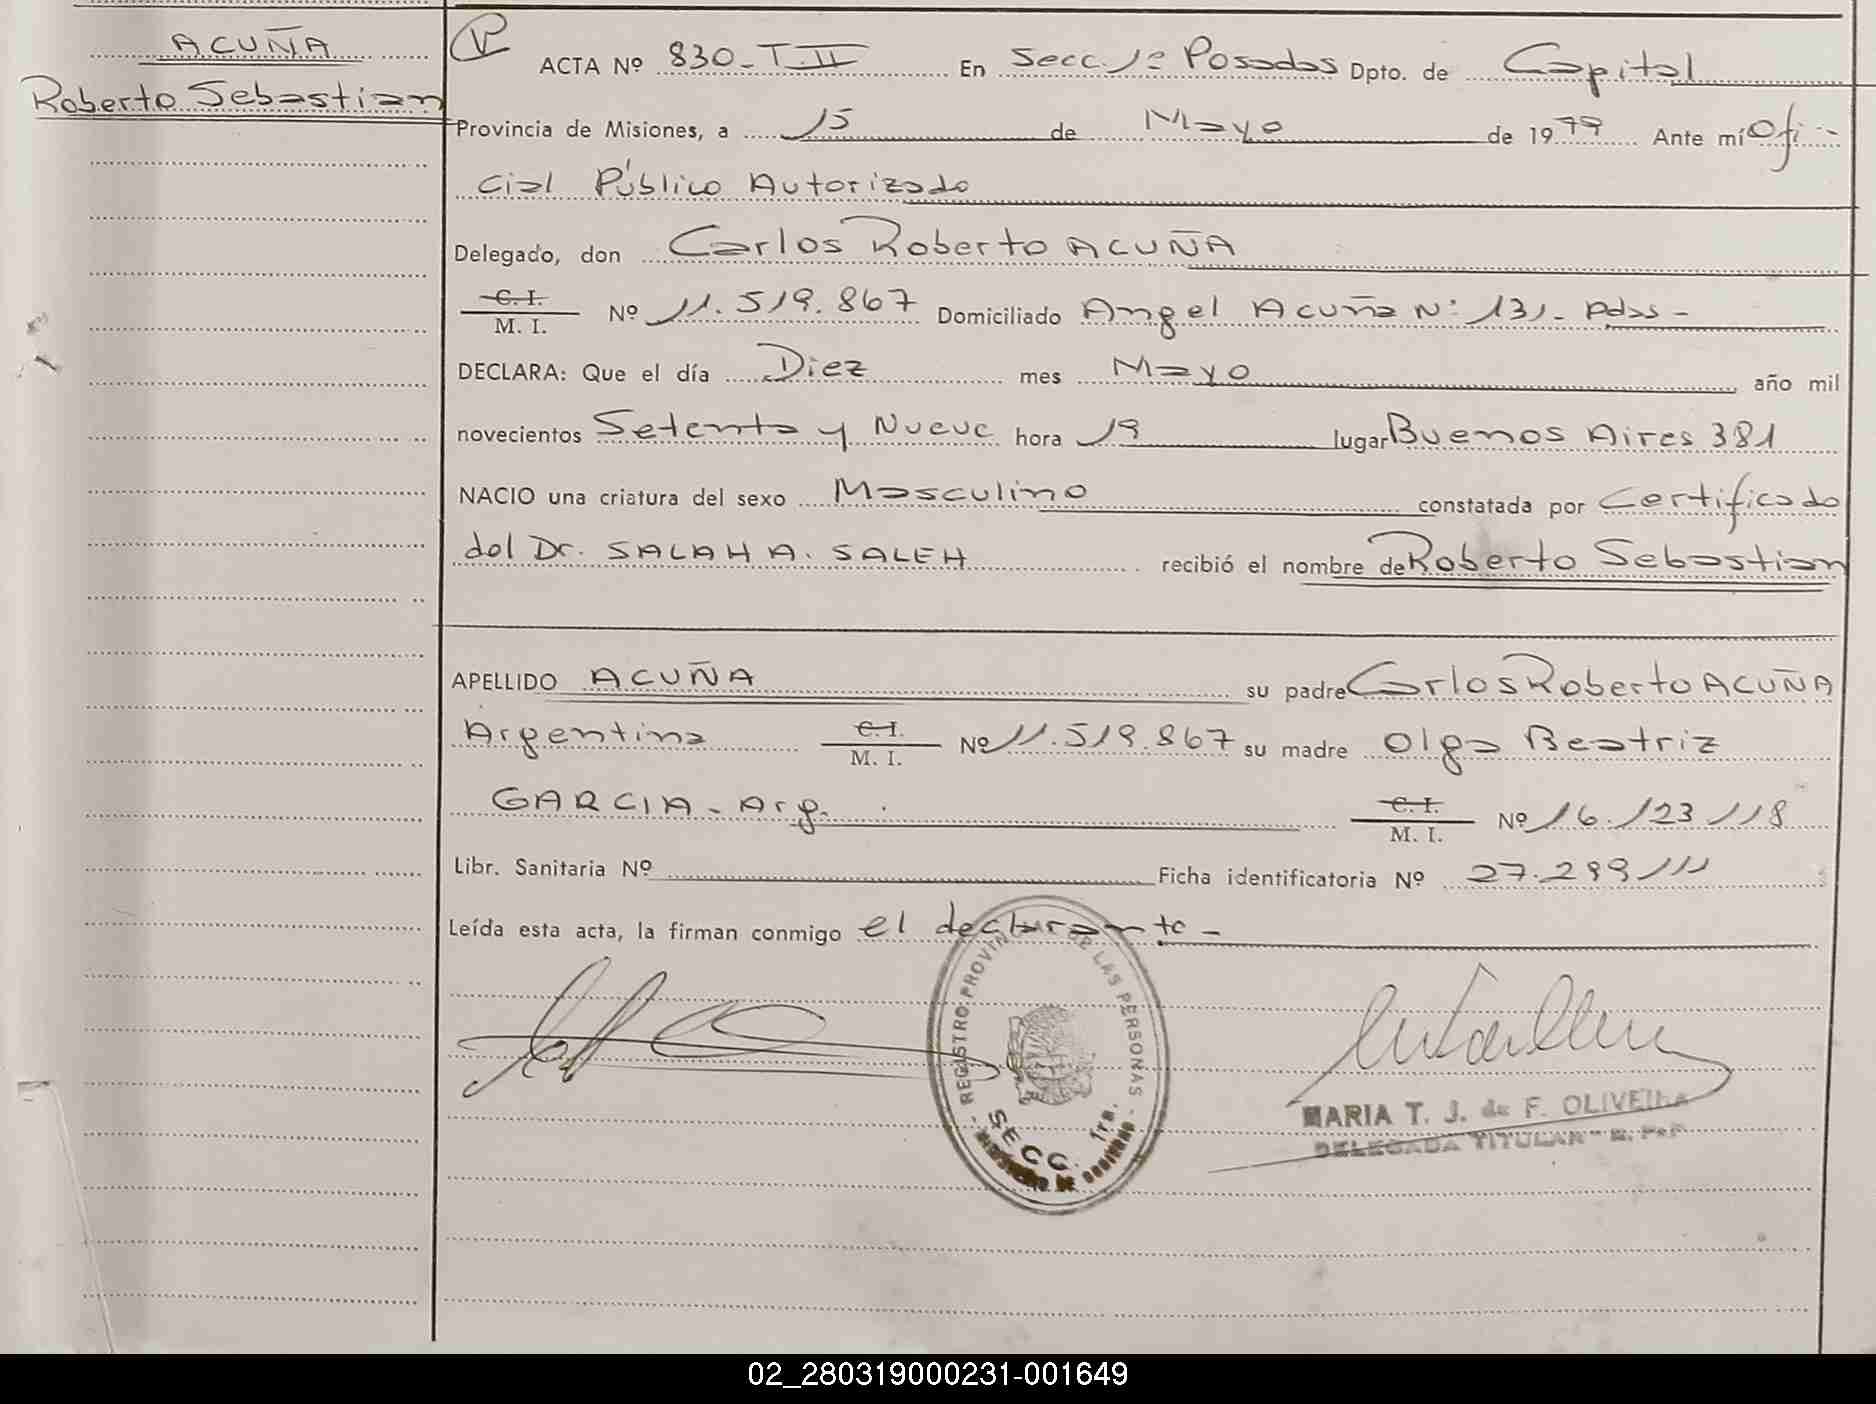 ACUÑA
Roberto Sebastian
ACTA Nº 830-T.II En Secc. 1º Posadas Dpto. de Capital
Provincia de Misiones, a 15 de Mayo de 1979 Ante mí Ofi-
cial Público Autorizado
Delegado, don Carlos Roberto ACUÑA
C. I.
M. I. Nº 11.519.867 Domiciliado Angel Acuña Nº 131- Pdas-
DECLARA: Que el día Diez mes Mayo año mil
novecientos Setenta y Nueve hora 19 lugar Buenos Aires 381
NACIO una criatura del sexo Masculino constatada por Certificado
del Dr. SALAH A. SALEH recibió el nombre de Roberto Sebastian
APELLIDO ACUÑA su padre Carlos Roberto ACUÑA
Argentina C. I. M. I. Nº 11.519.867 su madre Olga Beatriz
GARCIA - Arg. C. I. M. I. Nº 16.123.118
Libr. Sanitaria Nº Ficha identificatoria Nº 27.299.111
Leída esta acta, la firman conmigo el declarante -
REGISTRO PROVINCIAL DE LAS PERSONAS
SECC. 1ra.
MARIA T. J. de F. OLIVEIRA
DELEGADA TITULAR
02_280319000231-001649